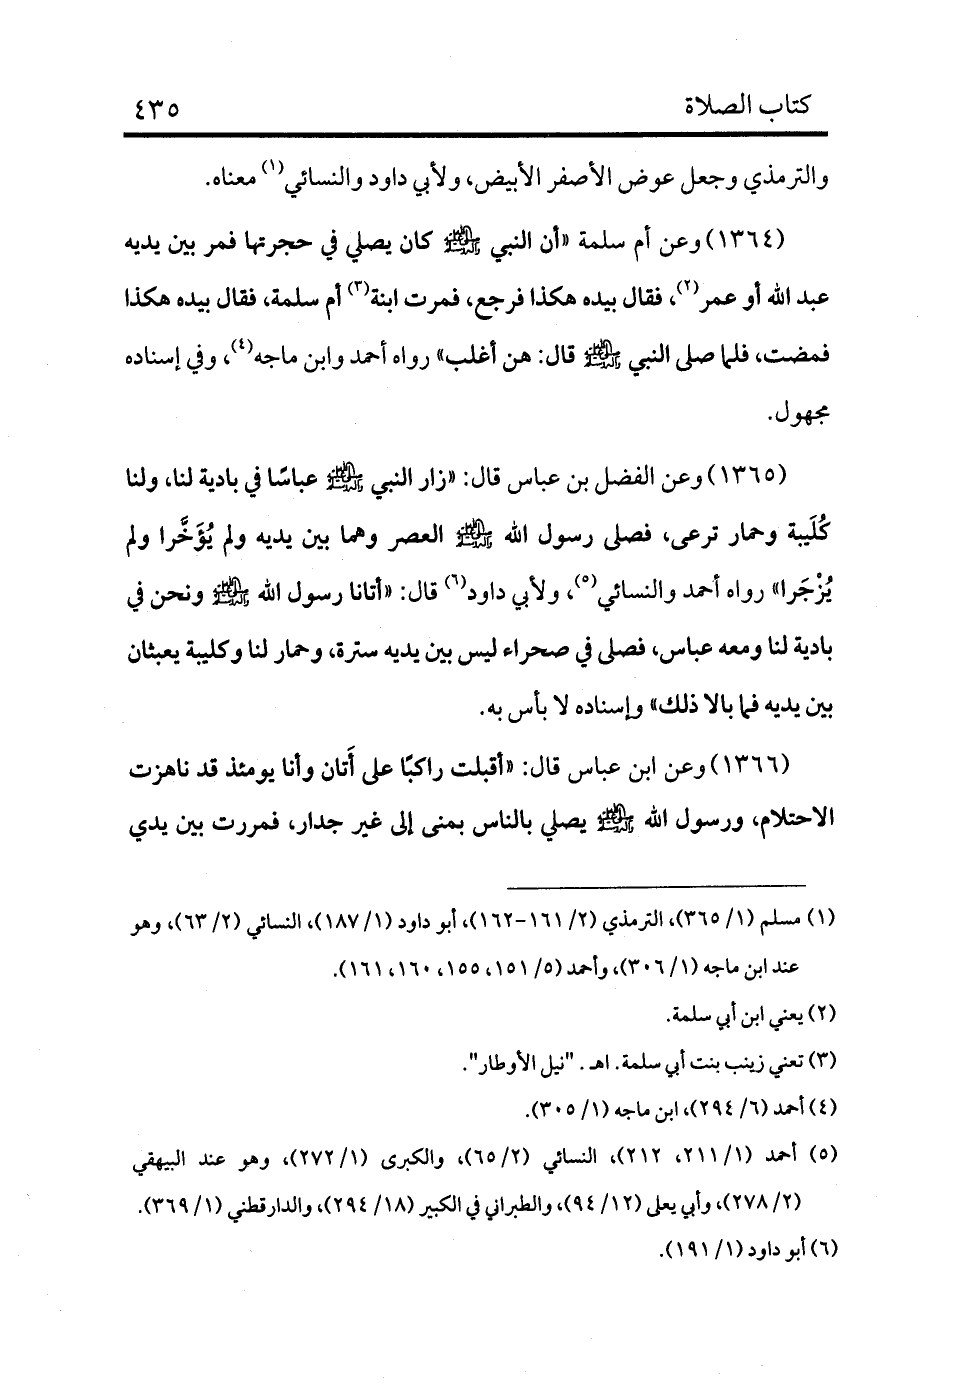 كتاب الصلاة ٤٣٥
والترمذي وجعل عوض الأصفر الأبيض، ولأبي داود والنسائي(١) معناه.
(١٣٦٤) وعن أم سلمة «أن النبي ﷺ كان يصلي في حجرتها فمر بين يديه
عبد الله أو عمر(٢)، فقال بيده هكذا فرجع، فمرت ابنة(٣) أم سلمة، فقال بيده هكذا
فمضت، فلما صلى النبي ﷺ قال: هن أغلب» رواه أحمد وابن ماجه(٤)، وفي إسناده
مجهول.
(١٣٦٥) وعن الفضل بن عباس قال: «زار النبي ﷺ عباسًا في بادية لنا، ولنا
كُلَيبة وحمار ترعى، فصلى رسول الله ﷺ العصر وهما بين يديه ولم يُؤَخَّرا ولم
يُزْجَرا» رواه أحمد والنسائي(٥)، ولأبي داود(٦) قال: «أتانا رسول الله ﷺ ونحن في
بادية لنا ومعه عباس، فصلى في صحراء ليس بين يديه سترة، وحمار لنا وكليبة يعبثان
بين يديه فما بالا ذلك» وإسناده لا بأس به.
(١٣٦٦) وعن ابن عباس قال: «أقبلت راكبًا على أَتان وأنا يومئذ قد ناهزت
الاحتلام، ورسول الله ﷺ يصلي بالناس بمنى إلى غير جدار، فمررت بين يدي
(١) مسلم (١/ ٣٦٥)، الترمذي (٢/ ١٦١-١٦٢)، أبو داود (١/ ١٨٧)، النسائي (٢/ ٦٣)، وهو
عند ابن ماجه (١/ ٣٠٦)، وأحمد (٥/ ١٥١، ١٥٥، ١٦٠، ١٦١).
(٢) يعني ابن أبي سلمة.
(٣) تعني زينب بنت أبي سلمة. اهـ. "نيل الأوطار".
(٤) أحمد (٦/ ٢٩٤)، ابن ماجه (١/ ٣٠٥).
(٥) أحمد (١/ ٢١١، ٢١٢)، النسائي (٢/ ٦٥)، والكبرى (١/ ٢٧٢)، وهو عند البيهقي
(٢/ ٢٧٨)، وأبي يعلى (١٢/ ٩٤)، والطبراني في الكبير (١٨/ ٢٩٤)، والدارقطني (١/ ٣٦٩).
(٦) أبو داود (١/ ١٩١).